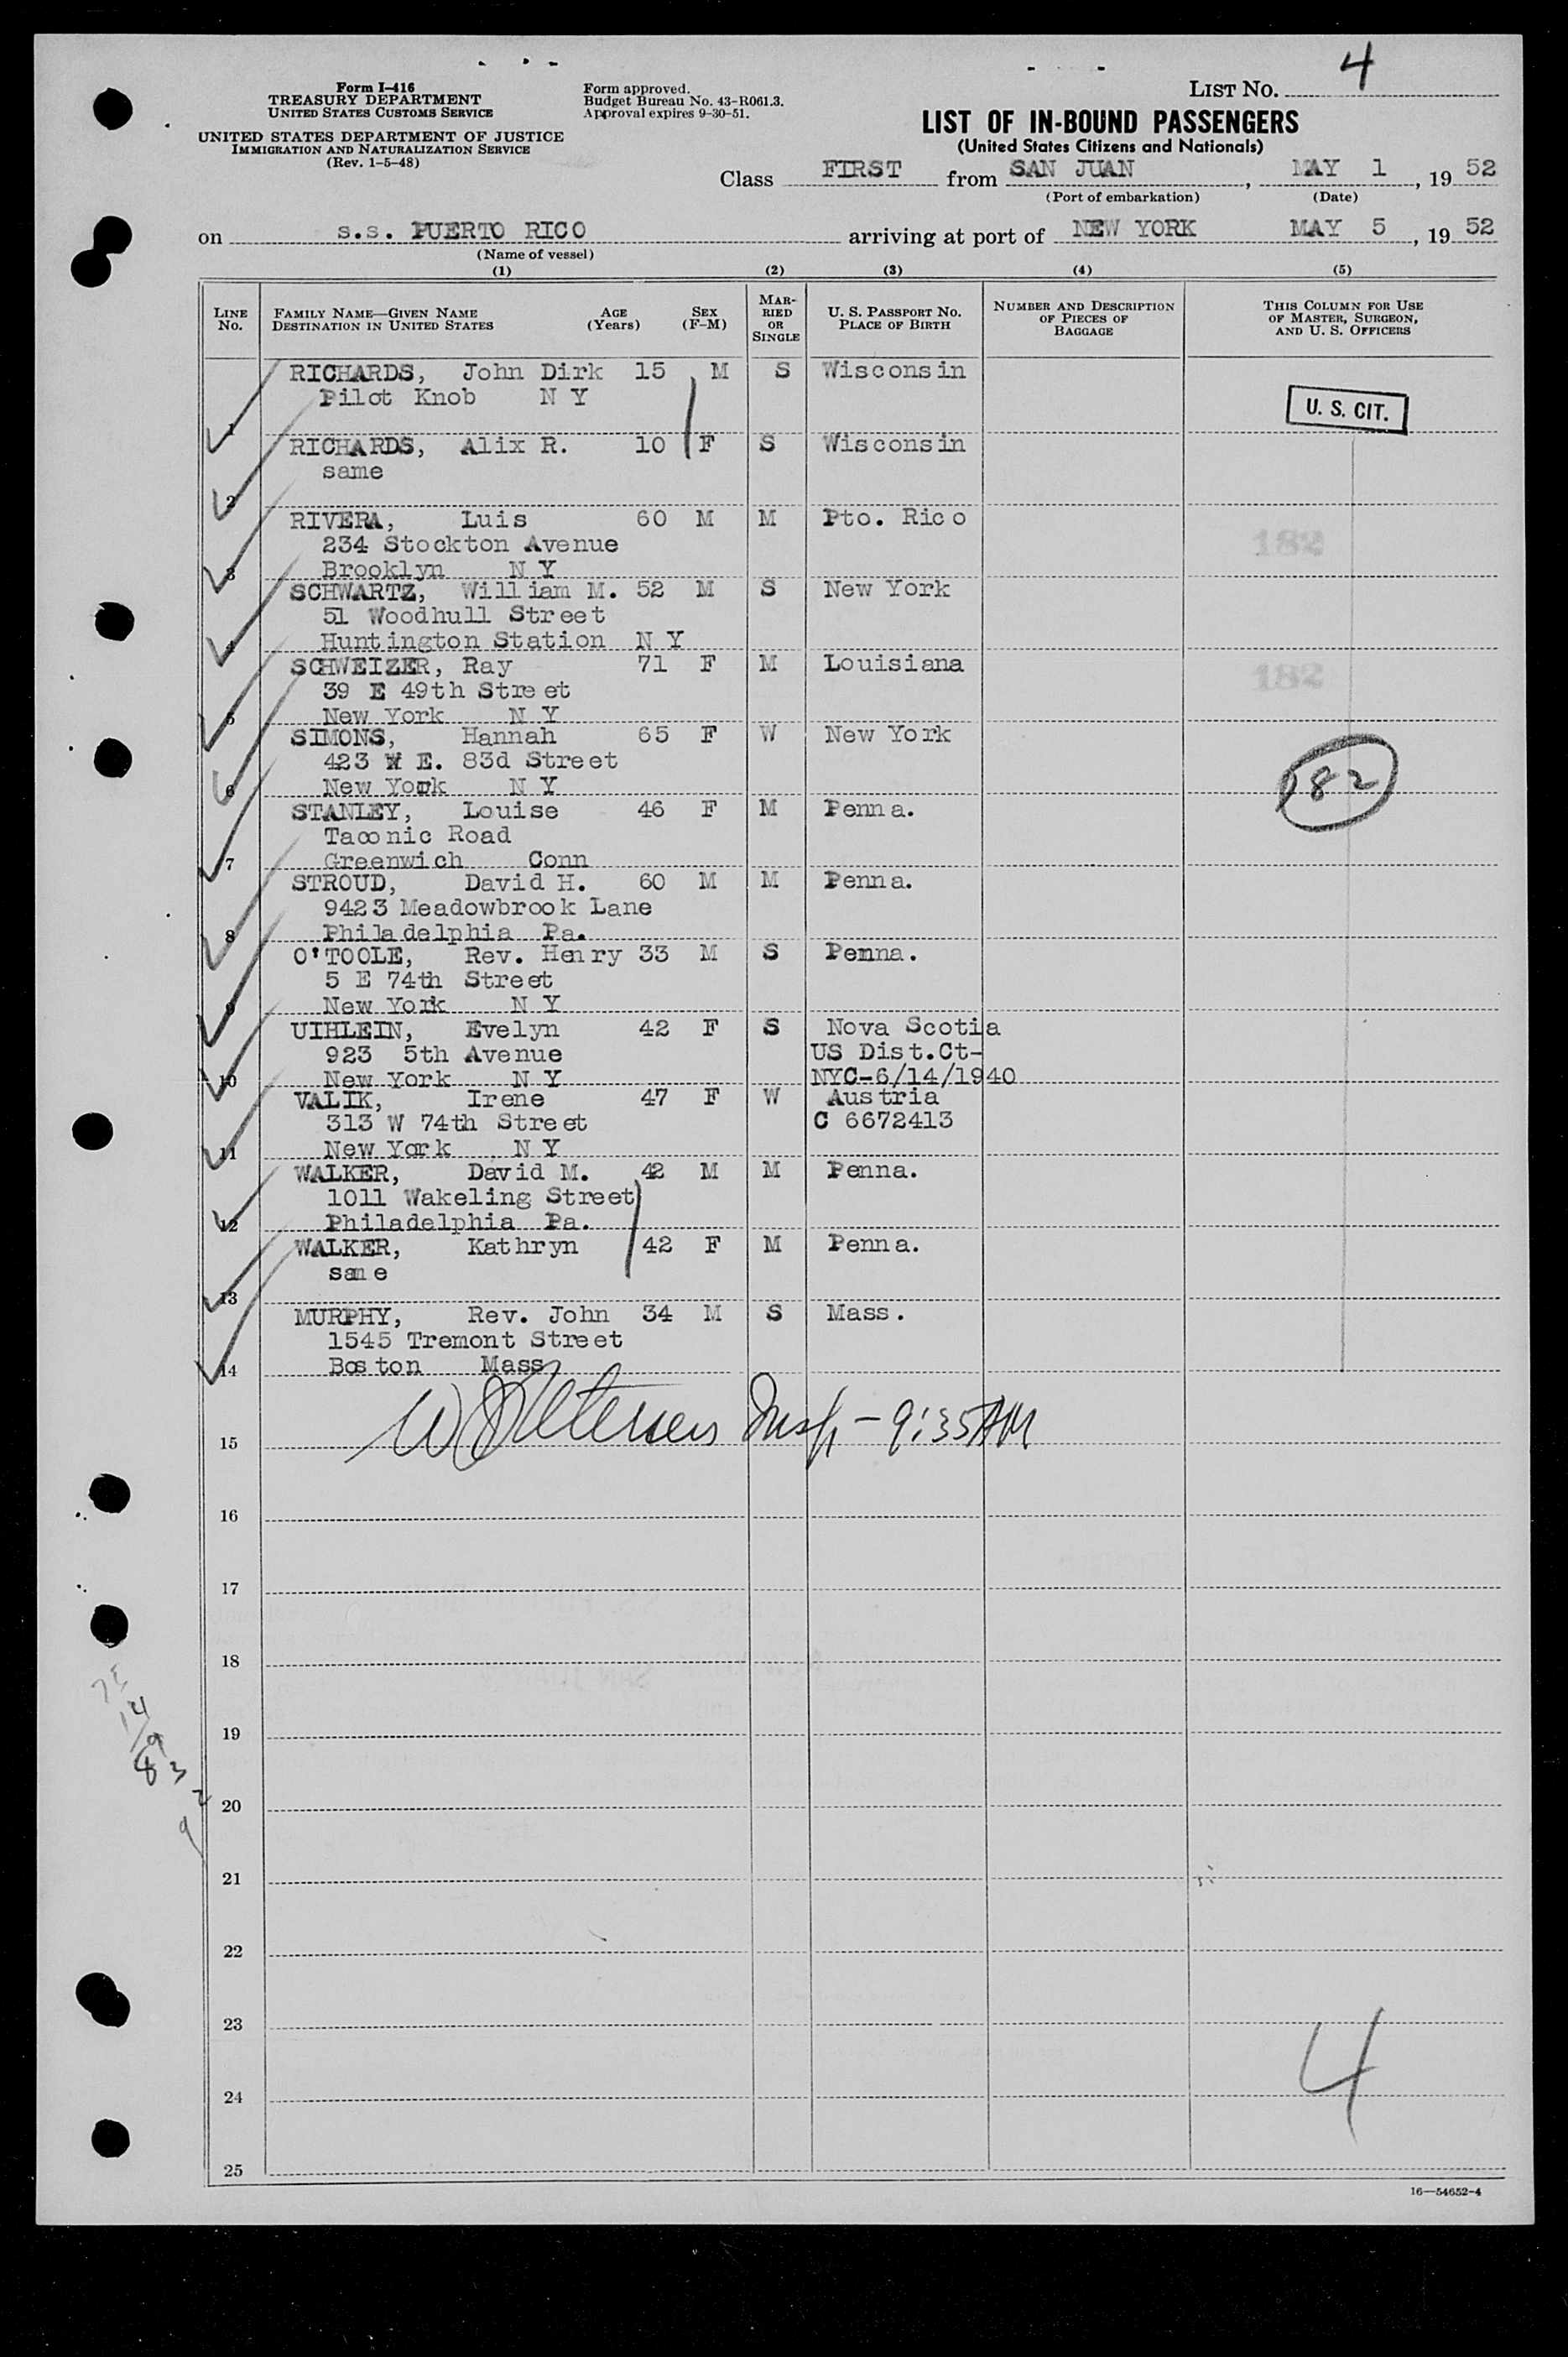 4
Form I-416
TREASURY DEPARTMENT
UNITED STATES CUSTOMS SERVICE
UNITED STATES DEPARTMENT OF JUSTICE
IMMIGRATION AND NATURALIZATION SERVICE
(Rev. 1-5-48)
Form approved.
Budget Bureau No. 43-R061.3.
Approval expires 9-30-51.
LIST No.
LIST OF IN-BOUND PASSENGERS
(United States Citizens and Nationals)
Class FIRST from SAN JUAN, MAY 1, 19 52
(Port of embarkation) (Date)
on s.s. PUERTO RICO arriving at port of NEW YORK MAY 5, 19 52
(Name of vessel)
(1) (2) (3) (4) (5)
LINE No. FAMILY NAME—GIVEN NAME DESTINATION IN UNITED STATES AGE (Years) SEX (F-M) MARRIED OR SINGLE U. S. PASSPORT No. PLACE OF BIRTH NUMBER AND DESCRIPTION OF PIECES OF BAGGAGE THIS COLUMN FOR USE OF MASTER, SURGEON, AND U. S. OFFICERS
RICHARDS, John Dirk 15 M S Wisconsin
Pilot Knob N Y
U. S. CIT.
1
RICHARDS, Alix R. 10 F S Wisconsin
same
2
RIVERA, Luis 60 M M Pto. Rico
234 Stockton Avenue
182
3 Brooklyn N Y
SCHWARTZ, William M. 52 M S New York
51 Woodhull Street
4 Huntington Station N Y
SCHWEIZER, Ray 71 F M Louisiana
39 E 49th Street
182
5 New York N Y
SIMONS, Hannah 65 F W New York
423 W E. 83d Street
6 New York N Y
182
STANLEY, Louise 46 F M Penna.
Taconic Road
7 Greenwich Conn
STROUD, David H. 60 M M Penna.
9423 Meadowbrook Lane
8 Philadelphia Pa.
O'TOOLE, Rev. Henry 33 M S Penna.
5 E 74th Street
9 New York N Y
UIHLEIN, Evelyn 42 F S Nova Scotia
923 5th Avenue US Dist.Ct-
10 New York N Y NYC-6/14/1940
VALIK, Irene 47 F W Austria
313 W 74th Street C 6672413
11 New York N Y
WALKER, David M. 42 M M Penna.
1011 Wakeling Street
12 Philadelphia Pa.
WALKER, Kathryn 42 F M Penna.
same
13
MURPHY, Rev. John 34 M S Mass.
1545 Tremont Street
14 Boston Mass
Insp - 9:35 AM
15
16
17
18
19
20
21
22
23
4
24
25
16—54652-4